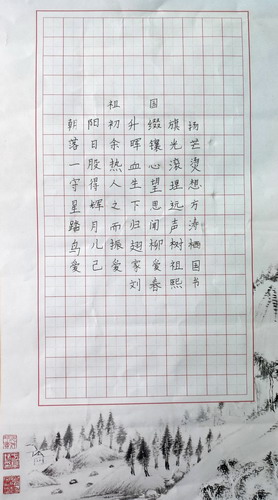 祖国
朝阳初升缀旗扬
落日余晖镶光芒
一股熱血心滚烫
守得人生望理想
星辉之下思远方
踏月而归闻声涛
鸟儿振翅柳树栖
爱己爱家爱祖国
刘春熙书